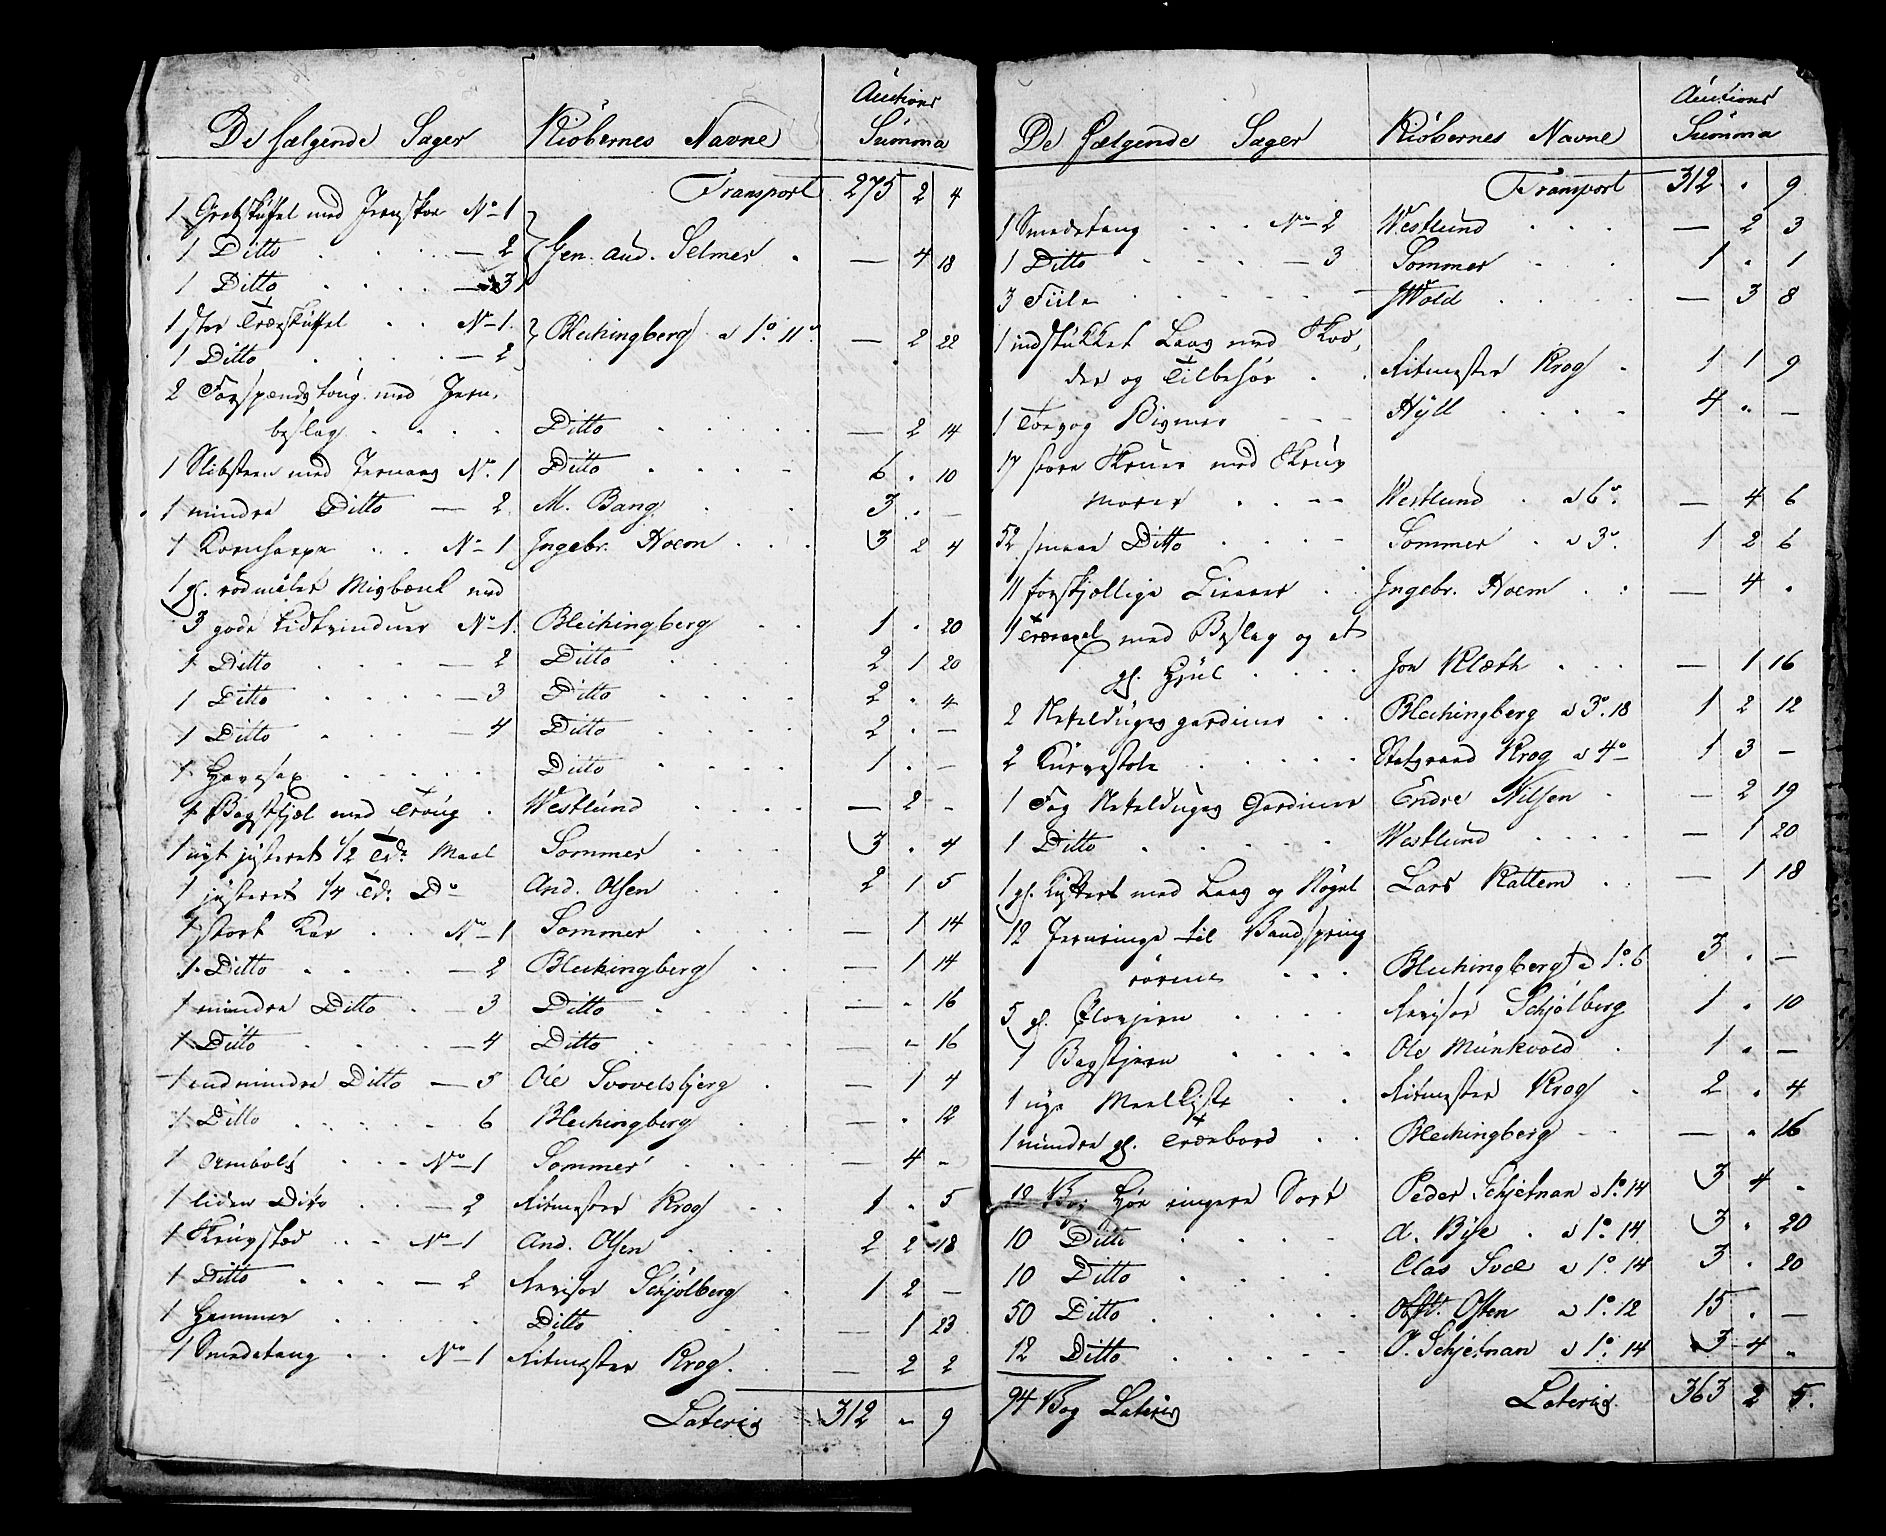 De følgende Sager Kiøbernes Navne Auctions Summa
Transport 275 2 4
1 Grebskuffel med Jernskoe No 1
1 Ditto — 2 Gen. aud. Selmer — 4 18
1 Ditto — 3
1 stor Træskuffel No 1
1 Ditto — 2 Blechingberg a 1o 11s — 2 22
2 Forspændstoug med Jern-
beslag Ditto — 2 14
1 Slibsteen med Jernaag No 1 Ditto 6 . 10
1 mindre Ditto — 2 M. Bang 3 . —
1 Kornharpe No 1 Ingebr. Hoem 3 2 4
1 gl. rødmalet Misbænk med
3 gode No 1 Blechingberg 1 . 20
1 Ditto — 2 Ditto 2 1 20
1 Ditto — 3 Ditto 2 . 4
1 Ditto — 4 Ditto 2 . —
1 Havesax Ditto 1 . —
1 Bagstfjæl med Troug Westlund — 2 -
1 nyt justeret 1/2 Tde Maal Sommer 3 . 4
1 justeret 1/4 Tde Do And. Olsen 2 1 5
1 stort Kar No 1 Sommer — 1 14
1 Ditto — 2 Blechingberg — 1 14
1 mindre Ditto — 3 Ditto — . 16
1 Ditto — 4 Ditto — - 16
1 endmindre Ditto — 5 Ole Svovelsbjerg — 1 4
1 Ditto 6 Blechingberg — . 12
1 Ambolt No 1 Sommer — 4 -
1 liden Ditto — 2 Ritmester Krog 1 . 5
1 Skruestæd No 1 And. Olsen 2 2 18
1 Ditto — 2 Revisor Schjølberg 1 2 —
1 Hammer Ditto — 1 23
1 Smedetang No 1 Ritmester Krog. — 2 2
Lateris 312 - 9
De følgende Sager Kiøbernes Navne Auctions Summa
Transport 312 . 9
1 Smedetang No 2 Westlund — 2 3
1 Ditto — 3 Sommer 1 . 1
3 Fiile Wold — 3 8
1 indstukket Laas med Skod-
der og Tilbehør Ritmester Krog 1 1 9
1 Bismer Hyll 4 - —
17 store Skruer med Skrue
moere Westlund a 6s — 4 6
52 smaae Ditto Sommer a 3s 1 2 6
11 forskjellige Ingebr. Hoem — 4 .
1 Træaxel med Beslag og et
gl. Hjul Jon Klæth — 1 16
2 Netteldugs gardiner Blechingberg a 3o 18 1 2 12
2 Kurvestole Krog a 4o 1 3 —
1 Fag Netteldugs Gardiner Endre Nilsen — 2 19
1 Ditto Westlund — 1 20
1 gl. med Laas og Nøgel Lars Rattem — 1 18
12 Jernringe til Vandspring
rørene Blechingberg a 1o 6 3 . —
5 gl. Plovjern Revisor Schjølberg 1 . 10
1 Bagstjern Ole Munkvold 1 . —
1 nye Meelkiste Ritmester Krog 2 . 4
1 mindre gl. Træebord Blechingberg — . 16
12 Bog Hør ringere Sort Peder Schjetnan a 1o 14 3 4 .
10 Ditto A. Bye a 1o 14 3 . 20
10 Ditto Clas Svee a 1o 14 3 . 20
50 Ditto Obstl. Osten a 1o 12 15 . —
12 Ditto O. Schjetnan a 1o 14 3 4 .
94 Bog Lateris Lateris. 363 2 5.